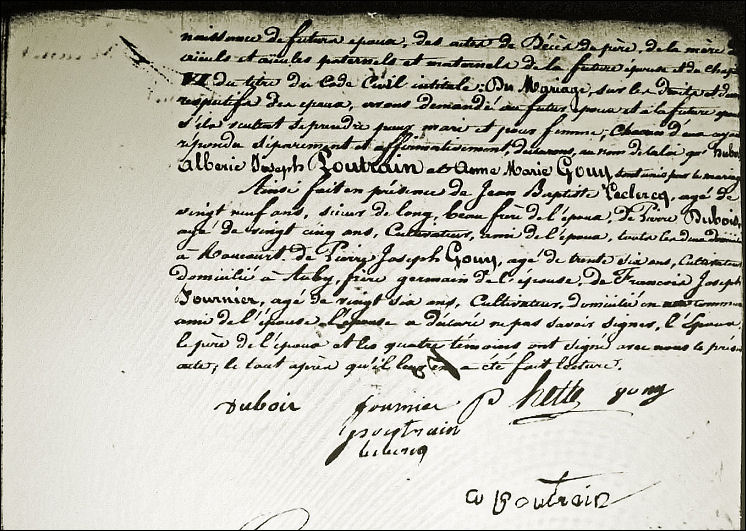 naissance de futurs epoux, des actes de Décès de père, de la mère
aieuls et aieules paternels et maternels de la future épouse et du chap
VI du titre du Code Civil intitulé: Du Mariage, sur les Droits et
respectifs des epoux, avons demandé au futur epoux et à la future
s'ils veulent se prendre pour mari et pour femme; Chacun d'eux ayant
répondu séparement et affirmativement, declarons, au nom de la loi que
Alberic Joseph Poutrain et Anne Marie Gouy sont unis par le mariage
Ainsi fait en présence de Jean Baptiste Leclercq, agé de
vingt neuf ans, sieur de long, beau frère de l'epoux, De Pierre Dubois,
agé de vingt cinq ans, Cultivateur, ami de l'epoux, tous les deux
à Roucourt. de Pierre Joseph Gouy, agé de trente six ans, Cultivateur
domicilié à Auby, frère germain de l'épouse, de Francois Joseph
Fournier, agé de vingt six ans, Cultivateur, domicilié en commune
ami de l'épouse. L'epouse a déclaré ne pas savoir signer, l'Epoux,
le père de l'epoux et les quatre témoins ont signé avec nous le présent
acte, le tout après qu'il leur en a été fait lecture.
Dubois fournier P hette gouy
poutrain
leclercq
a Poutrain